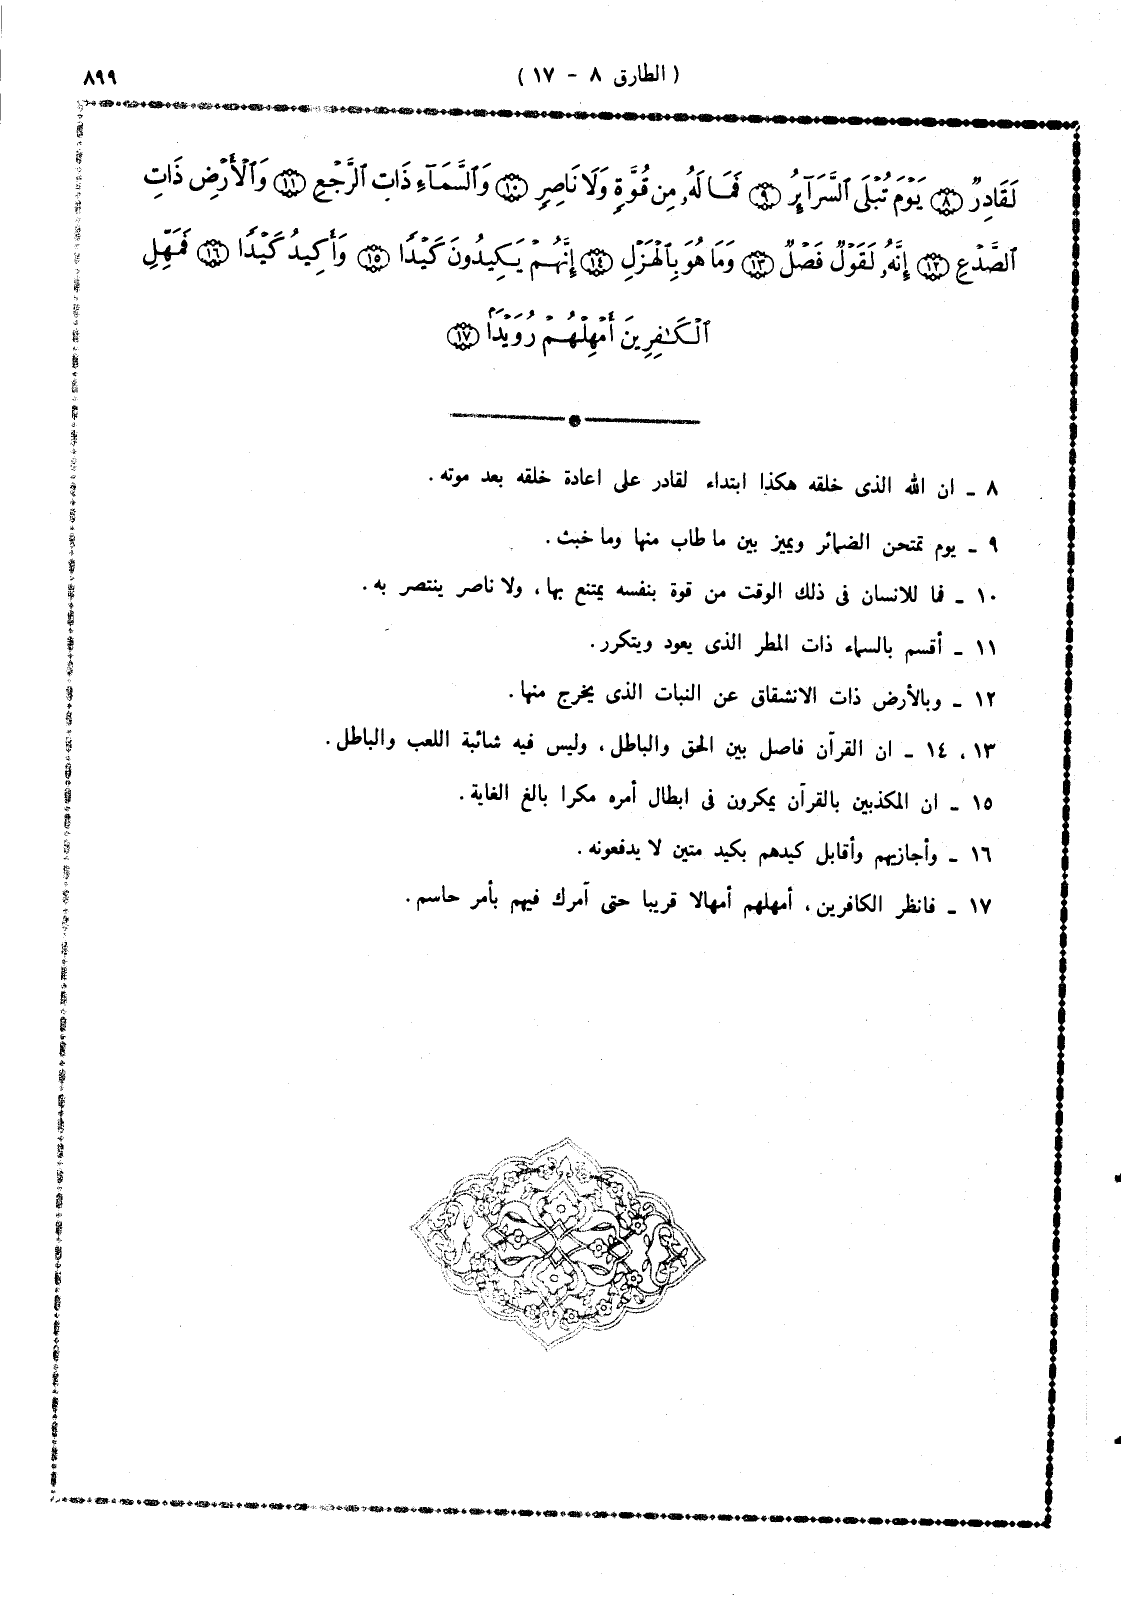 ( الطارق ٨ - ١٧ )
٨٩٩
لَقَادِرٌ ٨ يَوْمَ تُبْلَى ٱلسَّرَآئِرُ ٩ فَمَا لَهُۥ مِن قُوَّةٍ وَلَا نَاصِرٍ ١٠ وَٱلسَّمَآءِ ذَاتِ ٱلرَّجْعِ ١١ وَٱلْأَرْضِ ذَاتِ
ٱلصَّدْعِ ١٢ إِنَّهُۥ لَقَوْلٌ فَصْلٌ ١٣ وَمَا هُوَ بِٱلْهَزْلِ ١٤ إِنَّهُمْ يَكِيدُونَ كَيْدًا ١٥ وَأَكِيدُ كَيْدًا ١٦ فَمَهِّلِ
ٱلْكَـٰفِرِينَ أَمْهِلْهُمْ رُوَيْدًۢا ١٧
٨ ـ ان الله الذى خلقه هكذا ابتداء لقادر على اعادة خلقه بعد موته .
٩ ـ يوم تمتحن الضمائر ويميز بين ما طاب منها وما خبث .
١٠ ـ فما للانسان فى ذلك الوقت من قوة بنفسه يمتنع بها ، ولا ناصر ينتصر به .
١١ ـ أقسم بالسماء ذات المطر الذى يعود ويتكرر .
١٢ ـ وبالأرض ذات الانشقاق عن النبات الذى يخرج منها .
١٣ ، ١٤ ـ ان القرآن فاصل بين الحق والباطل ، وليس فيه شائبة اللعب والباطل .
١٥ ـ ان المكذبين بالقرآن يمكرون فى ابطال أمره مكرا بالغ الغاية .
١٦ ـ وأجازيهم وأقابل كيدهم بكيد متين لا يدفعونه .
١٧ ـ فانظر الكافرين ، أمهلهم أمهالا قريبا حتى آمرك فيهم بأمر حاسم .